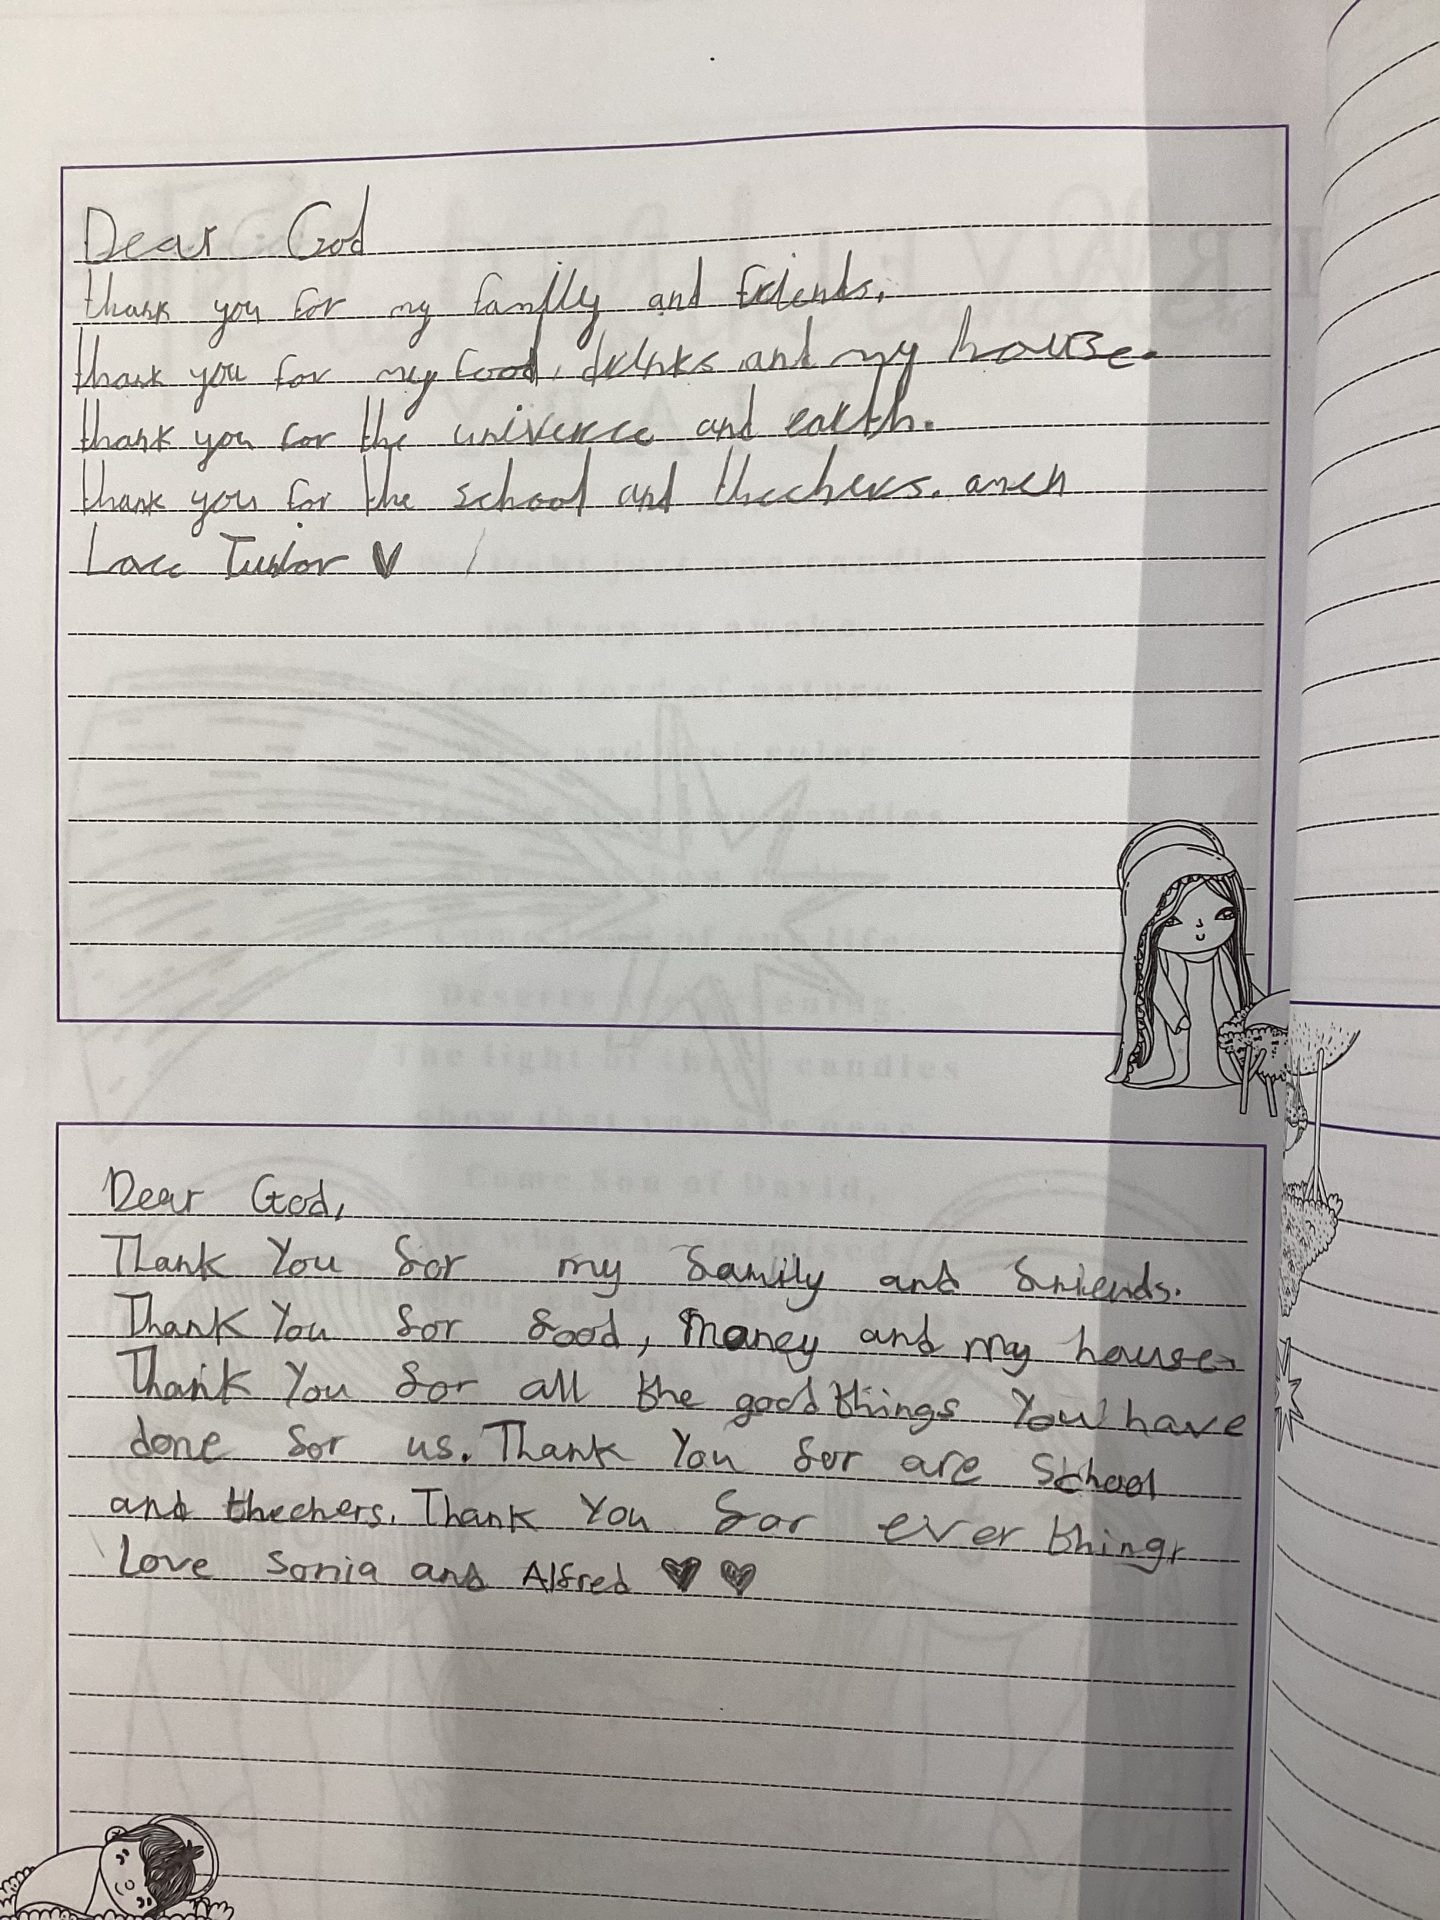 Dear God
thank you for my familly and friends.
thank you for my food, drinks and my house.
thank you for the universe and earth.
thank you for the school and thechers. amen
Love Tudor ♥
Dear God,
Thank You for my family and friends.
Thank You for food, money and my house.
Thank You for all the good things You have
done for us. Thank You for are school
and thechers. Thank You for ever thing,
Love Sonia and Alfred ♥ ♥